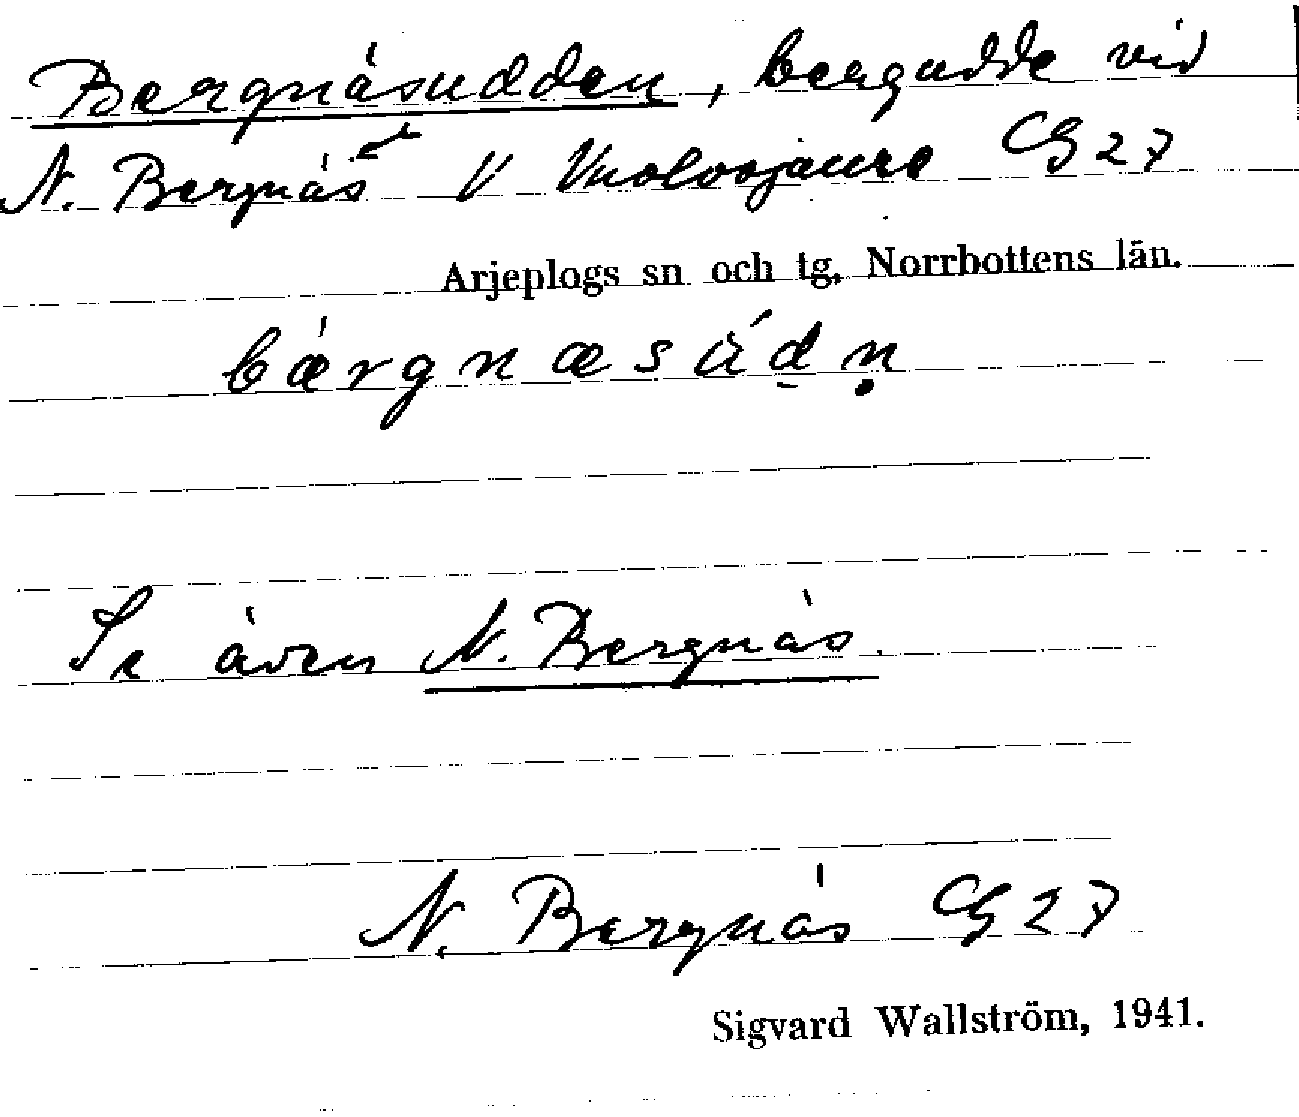 Bergnäsudden, bergudde vid
N. Bergnäs V Vuolvojaure CG 27
Arjeplogs sn och tg, Norrbottens län.
bǽrgnæsúd̲ṇ
Se även N. Bergnäs.
N. Bergnäs CG 27
Sigvard Wallström, 1941.